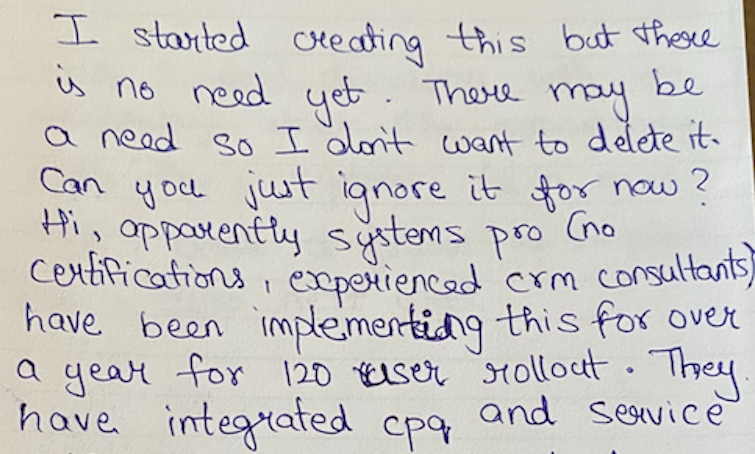 I started creating this but there
is no need yet. There may be
a need so I don't want to delete it.
Can you just ignore it for now?
Hi, apparently systems pro (no
certifications, experienced crm consultants)
have been implementing this for over
a year for 120 user rollout. They
have integrated cpq and service